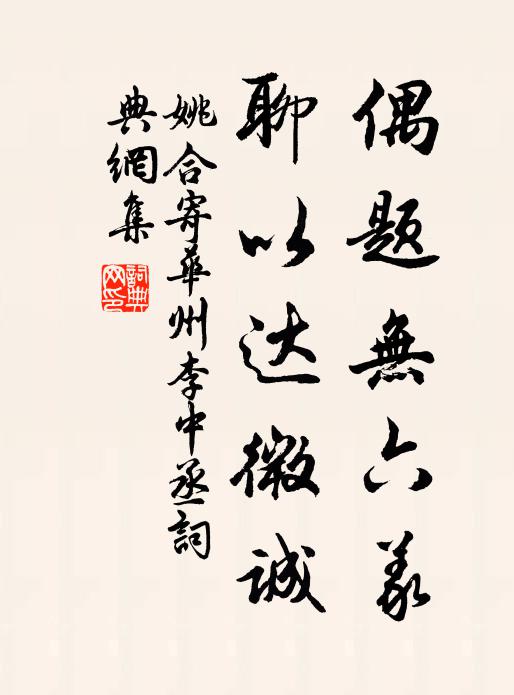 偶题無六義
聊以达微誠
姚合寄華州李中丞詞
典網集
詞典
网印